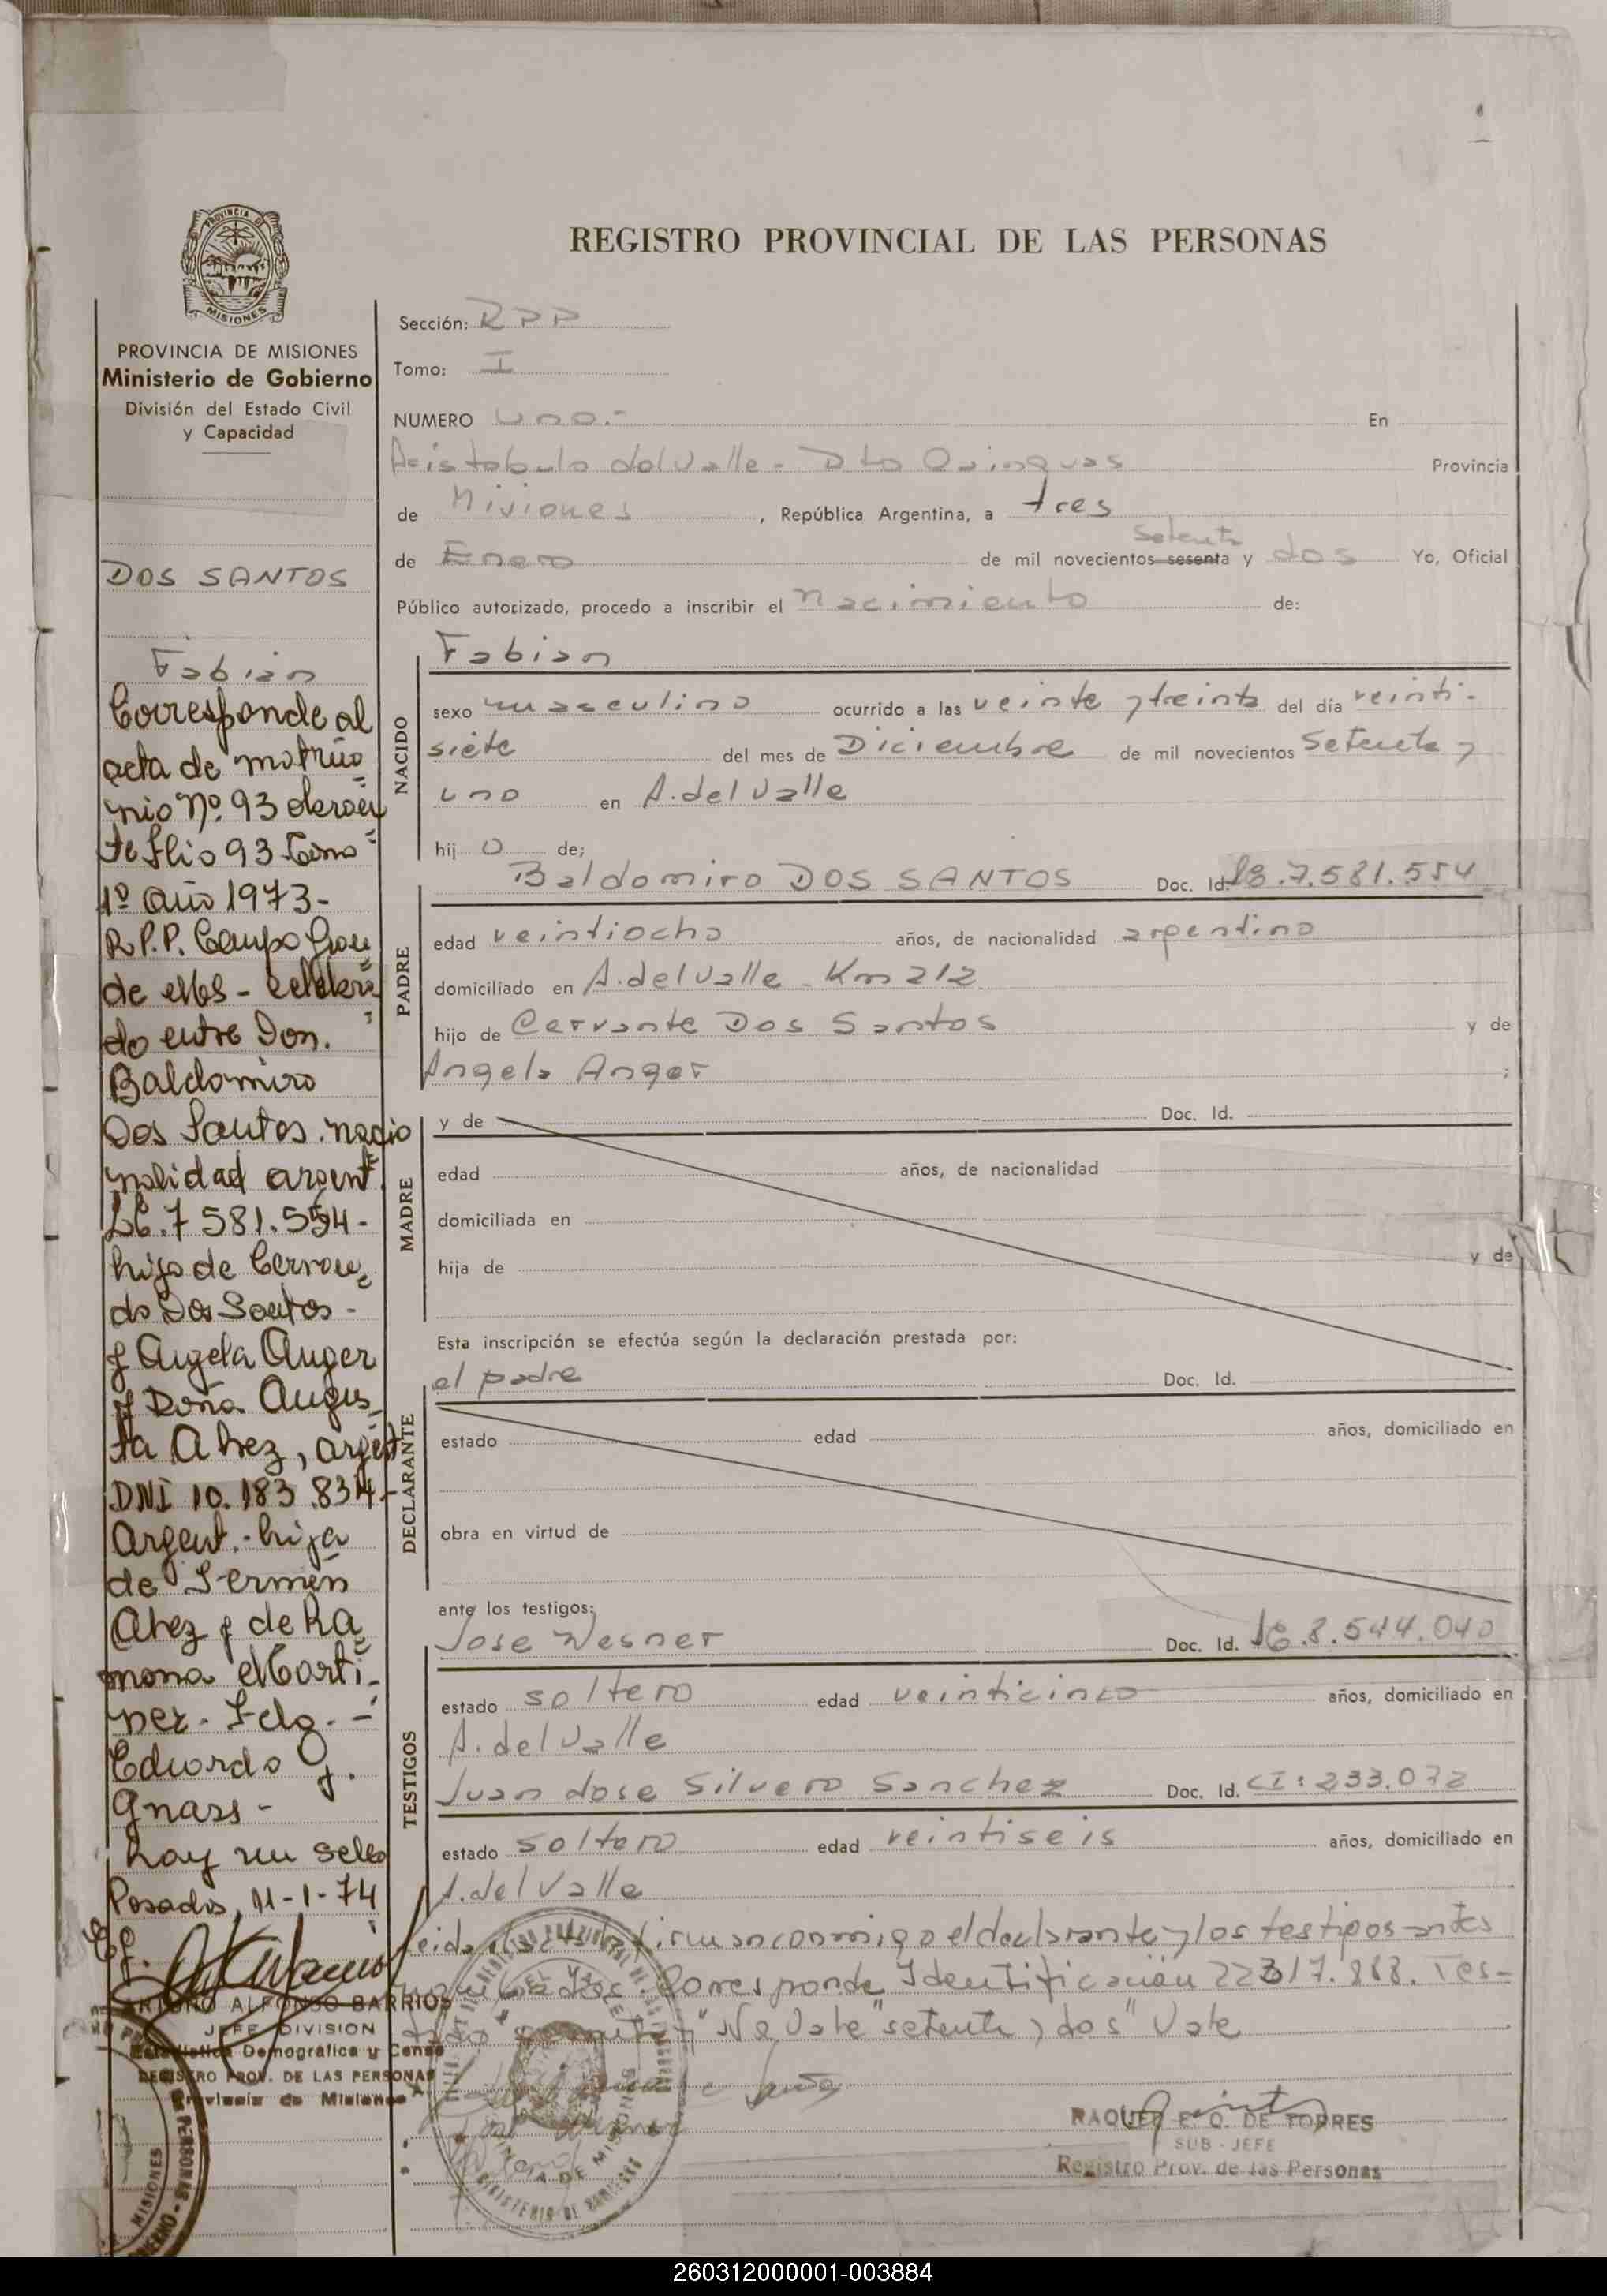 REGISTRO PROVINCIAL DE LAS PERSONAS
PROVINCIA DE MISIONES
Ministerio de Gobierno
División del Estado Civil
y Capacidad
DOS SANTOS
Fabian
Corresponde al
acta de matrimo
nio Nº. 93
93 Tomo
1º año 1973-
R.P.P. Campo
de
do entre Don.
Baldomiro
Dos Santos. nacio
nalidad argent.
LE.7 581.554-
hijo de
do Dos Santos-
y Angela Anger
y Doña Augus
ta Ahez, argent
DNI 10.183.834-
Argent.- hija
de Fermin
Ahez y de Ra
mona Marti-
nez. Fdo.-
Eduardo J.
Gnass-
hay un sello
Posadas, 11-1-74
ARTURO ALFONSO BARRIOS
JEFE DIVISION
Estadística Demográfica y Censo
REGISTRO PROV. DE LAS PERSONAS
Provincia de Misiones
Sección: RPP
Tomo: I
NUMERO uno.- En
Aristobulo del Valle - Dto Cainguas Provincia
de Misiones, República Argentina, a tres
setenta
de Enero de mil novecientos sesenta y dos Yo, Oficial
Público autorizado, procedo a inscribir el nacimiento de:
NACIDO
Fabian
sexo masculino ocurrido a las veinte y treinta del día veinti-
siete del mes de Diciembre de mil novecientos setenta y
uno en A. del Valle
hij o de;
PADRE
Baldomiro DOS SANTOS Doc. Id. LE.7.581.554
edad veintiocho años, de nacionalidad argentino
domiciliado en A. del Valle - Km 212
hijo de Cervante Dos Santos y de
Angela Anger ;
MADRE
y de Doc. Id.
edad años, de nacionalidad
domiciliada en
hija de y de
Esta inscripción se efectúa según la declaración prestada por:
DECLARANTE
el padre Doc. Id.
estado edad años, domiciliado en
obra en virtud de
ante los testigos:
TESTIGOS
Jose Wesner Doc. Id. LE.8.544.040
estado soltero edad veinticinco años, domiciliado en
A. del Valle
Juan Jose Silvero Sanchez Doc. Id. CI: 233.072
estado soltero edad veintiseis años, domiciliado en
A. del Valle
Leida firman conmigo el declarante y los testigos antes
Corresponde Identificación 22317.868. Tes-
"No Vale" "setenta y dos" Vale
RAQUEL E. Q. DE TORRES
SUB - JEFE
Registro Prov. de las Personas
260312000001-003884